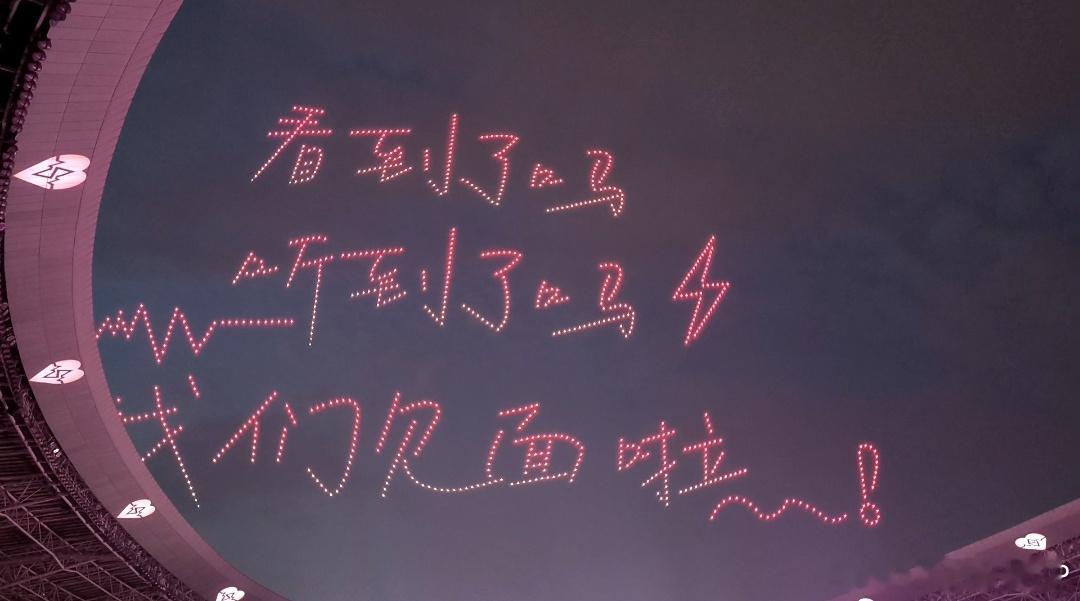 看到了吗
听到了吗
我们见面啦~!